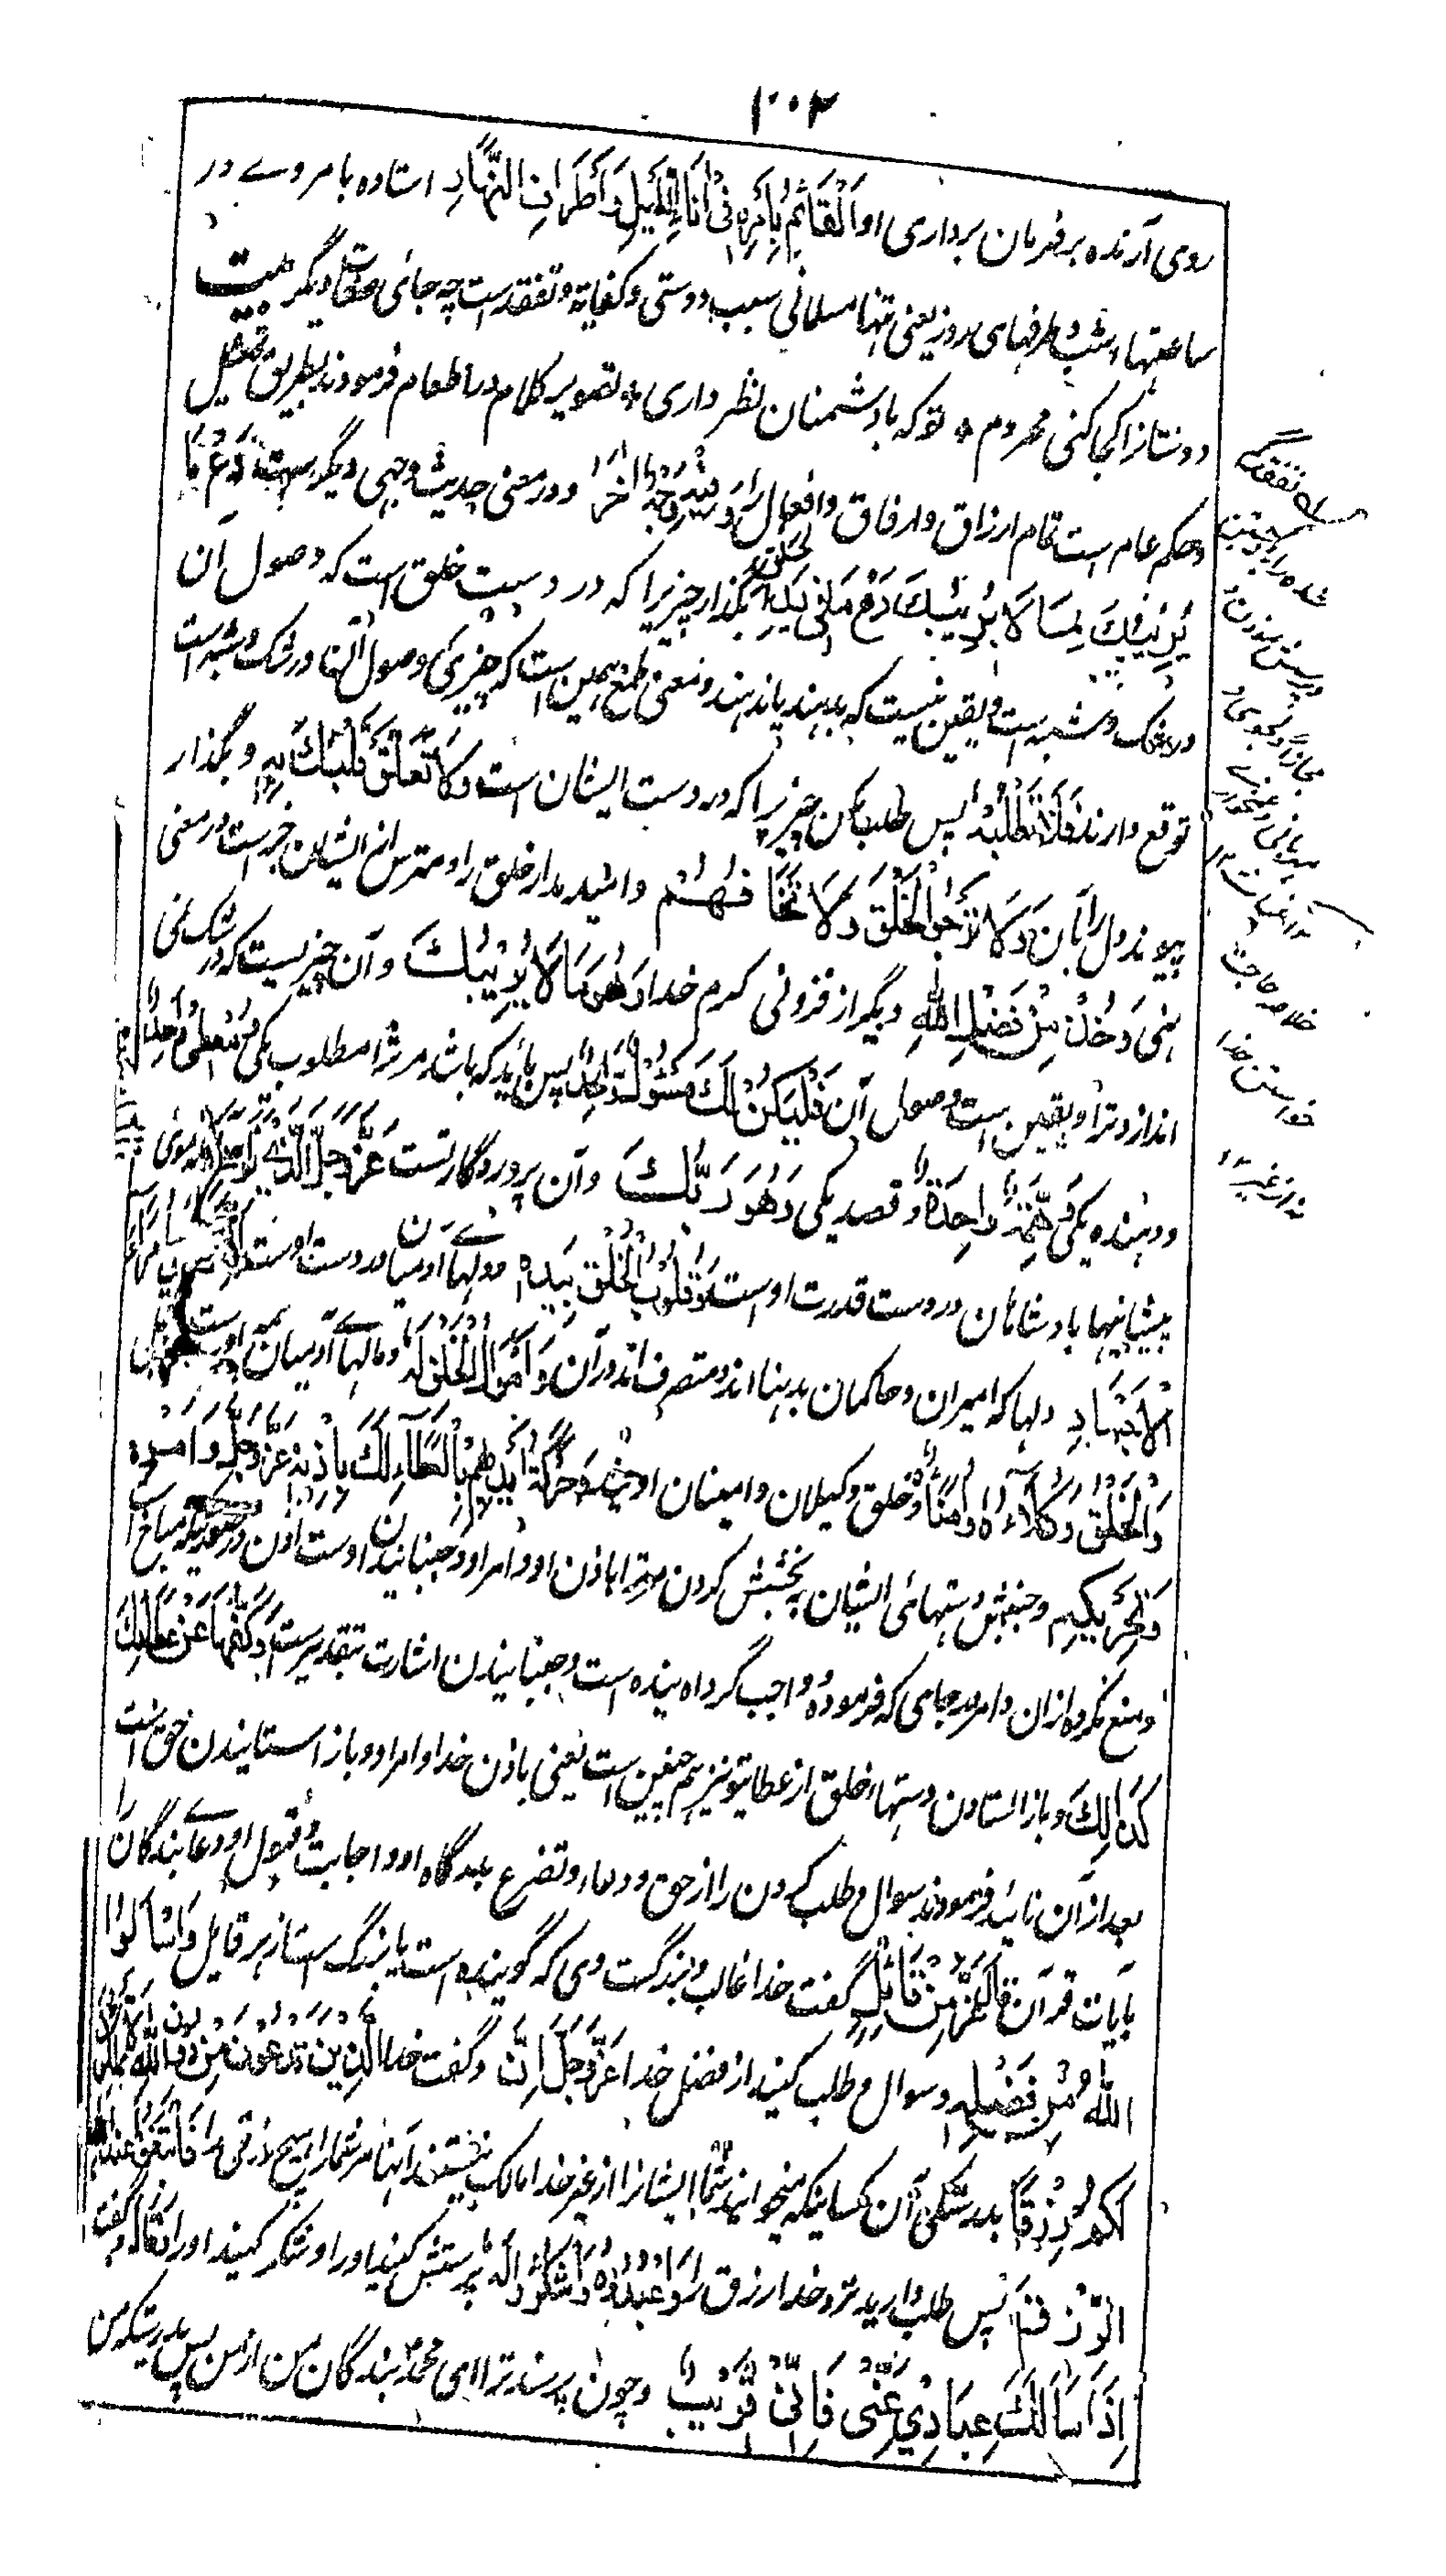 ۱۰۲
روی آرنده بر فرمان برداری او اَلْقَائِمُ بِاَمْرِهٖ فِیْ اٰنَاءِ اللَّیْلِ وَاَطْرَافِ النَّهَارِ استاده بامر وے در
ساعتهاء شب و طرفهای روز یعنی تنها مسلمانی سبب دوستی و کفایة و تفقد است چه جائی صفات دیگر بیت
دوستانرا کجا کنی محروم * تو که با دشمنان نظر داری * تصویر کلام در اطعام فرمودند بطریق تمثیل
و حکم عام است تمام ارزاق و ارفاق و افعال را وَفِیْهِ وَجْهٌ اٰخَرُ و در معنی حدیث وجهی دیگر است دَعْ مَا
یُرِیْبُکَ اِلٰی مَا لَا یُرِیْبُکَ دَعْ مَا فِیْ یَدِ الْخَلْقِ بگذار چیزیرا که در دست خلق است که وصول آن
در شک و شبه است و یقین نیست که بدهند یا ندهند و معنی طمع همین است که چیزی که وصول آنها در شک و شبه است
توقع دارند فَلَا تَطْلُبْهُ پس طلب مکن چیزیرا که در دست ایشان است وَلَا تُعَلِّقْ قَلْبَکَ بِهٖ و مگذار
پیوند دل را بآن وَلَا تَرْجُ الْخَلْقَ وَلَا تَخَافَهُمْ و امید مدار خلق را و مترس از ایشان خبر است در معنی
نهی وَخُذْ مِنْ فَضْلِ اللّٰهِ و بگیر از فزونی کرم خدا وَهُوَ مَا لَا یُرِیْبُکَ و آن چیزیست که در شک نمی
اندازد ترا و یقین است وصول آن فَلْیَکُنْ لَکَ مَسْئُوْلٌ وَاحِدٌ پس باید که باشد مر ترا مطلوب یکی وَمُعْطِیْ وَاحِدٌ
و دهنده یکی وَهِمَّةٌ وَاحِدَةٌ و قصد یکی وَهُوَ رَبُّکَ و آن پروردگار تست عَزَّ وَجَلَّ الَّذِیْ نَوَاصِی
پیشانیها بادشاهان در دست قدرت اوست وَقُلُوْبُ الْخَلْقِ بِیَدِهٖ و دلهاے آدمیان در دست اوست
الْاَجْسَادِ دلها که امیران و حاکمان بدنها اند و متصرف اند در آن وَاَمْوَالُ الْخَلْقِ لَهٗ و مالهاے آدمیان همه اوراست
وَالْخَلْقُ وُکَلَاءُهٗ وَاُمَنَاؤُهٗ و خلق وکیلان و امینان اویند وَحَرَکَةُ اَیْدِیْهِمْ بِالْعَطَاءِ لَکَ بِاِذْنِهٖ عَزَّ وَجَلَّ وَاَمْرِهٖ
وَتَحْرِیْکِهٖ و جنبش دستهائی ایشان به بخشش کردن مر ترا باذن او و امر او و جنبانیدن اوست اذن در جائیکه مباح
و منع نکرده ازان و امر در جای که فرموده و واجب گردانیده است و جنبانیدن اشارت بتقدیر است وَکَفُّهَا عَنْ عَطَائِکَ
کَذٰالِکَ و باز استادن دستهاء خلق از عطایتو نیز هم چنین است یعنی باذن خدا و امر او و باز استانیدن حق است
بعد از آن تائید فرمودند سوال و طلب کردن را از حق و دعاء و تضرع بدرگاه او و اجابت و قبول او دعاے بندگان را
بآیات قرآن قَالَ عَزَّ مِنْ قَائِلٍ گفت خدا غالب و بزرگست وی که گوینده است یا بزرگ است از هر قایل وَاسْاَلُوا
اللّٰهَ مِنْ فَضْلِهٖ و سوال و طلب کنید از فضل خدا عَزَّ وَجَلَّ اِنَّ و گفت خدا الَّذِیْنَ تَدْعُوْنَ مِنْ دُوْنِ اللّٰهِ لَا یَمْلِکُوْنَ
لَکُمْ رِزْقًا بدرستیکه آن کسانیکه میخوانید شما ایشانرا از غیر خدا مالک نیستند آنها مر شمارا هیچ رزقی را فَابْتَغُوْا عِنْدَ اللّٰهِ
الرِّزْقَ پس طلب دارید نزد خدا رزق را وَاعْبُدُوْهُ وَاشْکُرُوْا لَهٗ پرستش کنید اورا و شکر کنید اورا وَقَالَ و گفت
اِذَا سَاَلَکَ عِبَادِیْ عَنِّیْ فَاِنِّیْ قَرِیْبٌ و چون پرسند ترا ای محمد بندگان من از من پس بدرستیکه من
له تفقد
خلاصه حاجت
خواستن خدا
نه از غیر